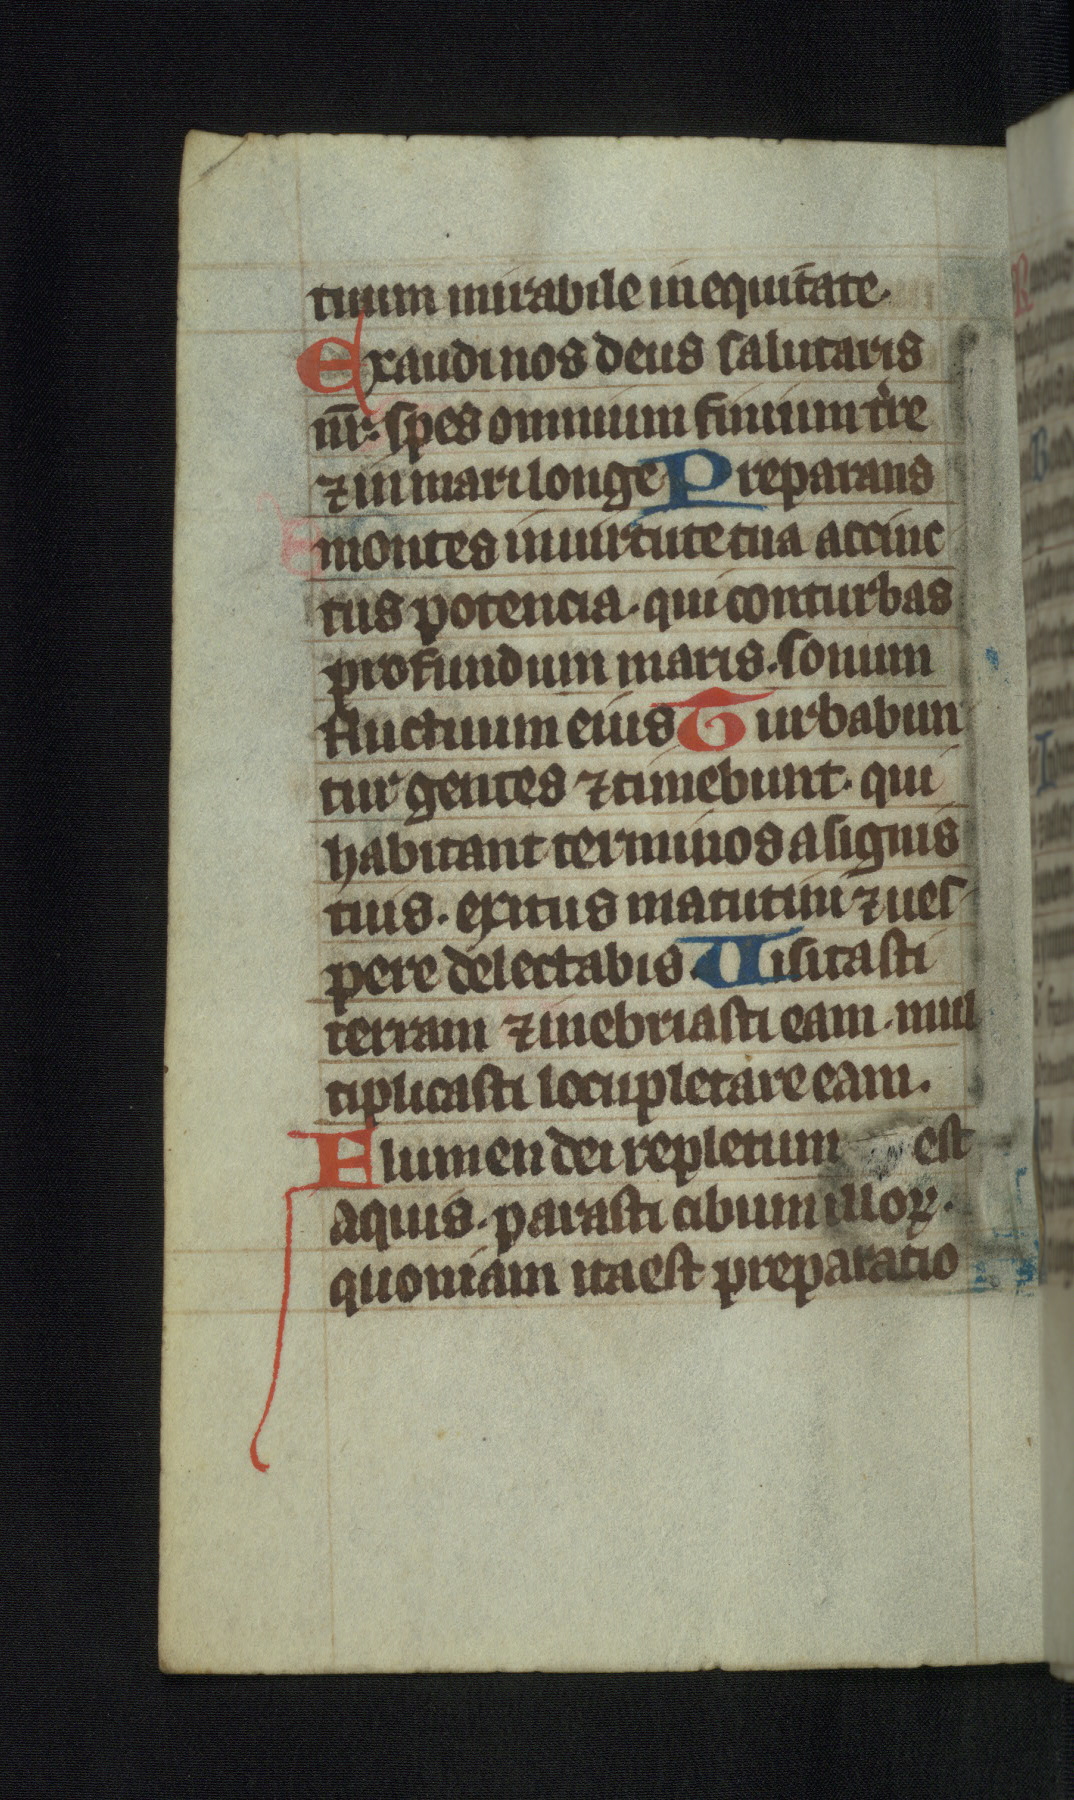 tuum mirabile in equitate
Exaudi nos deus salutaris
nr̄. spes omnium finium tr̄re
⁊ in mari longe Preparans
montes in uirtute tua accinc
tus potencia. qui conturbas
profundum maris. sonum
fluctuum eius Turbabun
tur gentes ⁊ timebunt. qui
habitant terminos a signis
tuis. exitus matutini ⁊ ues
pere delectabis. Uisitasti
terram ⁊ inebriasti eam. mul
tiplicasti locupletare eam.
Flumen dei repletum est
aquis. parasti cibum illoꝝ.
quoniam ita est preparatio